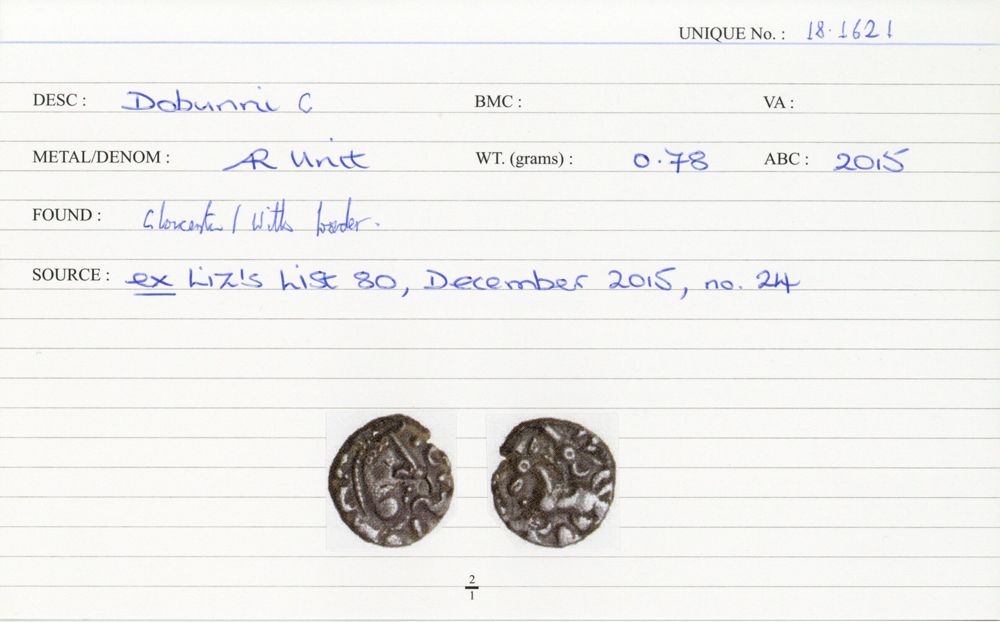 UNIQUE No. : 18.1621
DESC : Dobunni C BMC : VA :
METAL/DENOM : AR Unit WT. (grams) : 0.78 ABC : 2015
FOUND : / Wilts border.
SOURCE : ex Liz's List 80, December 2015, no. 24
2
1